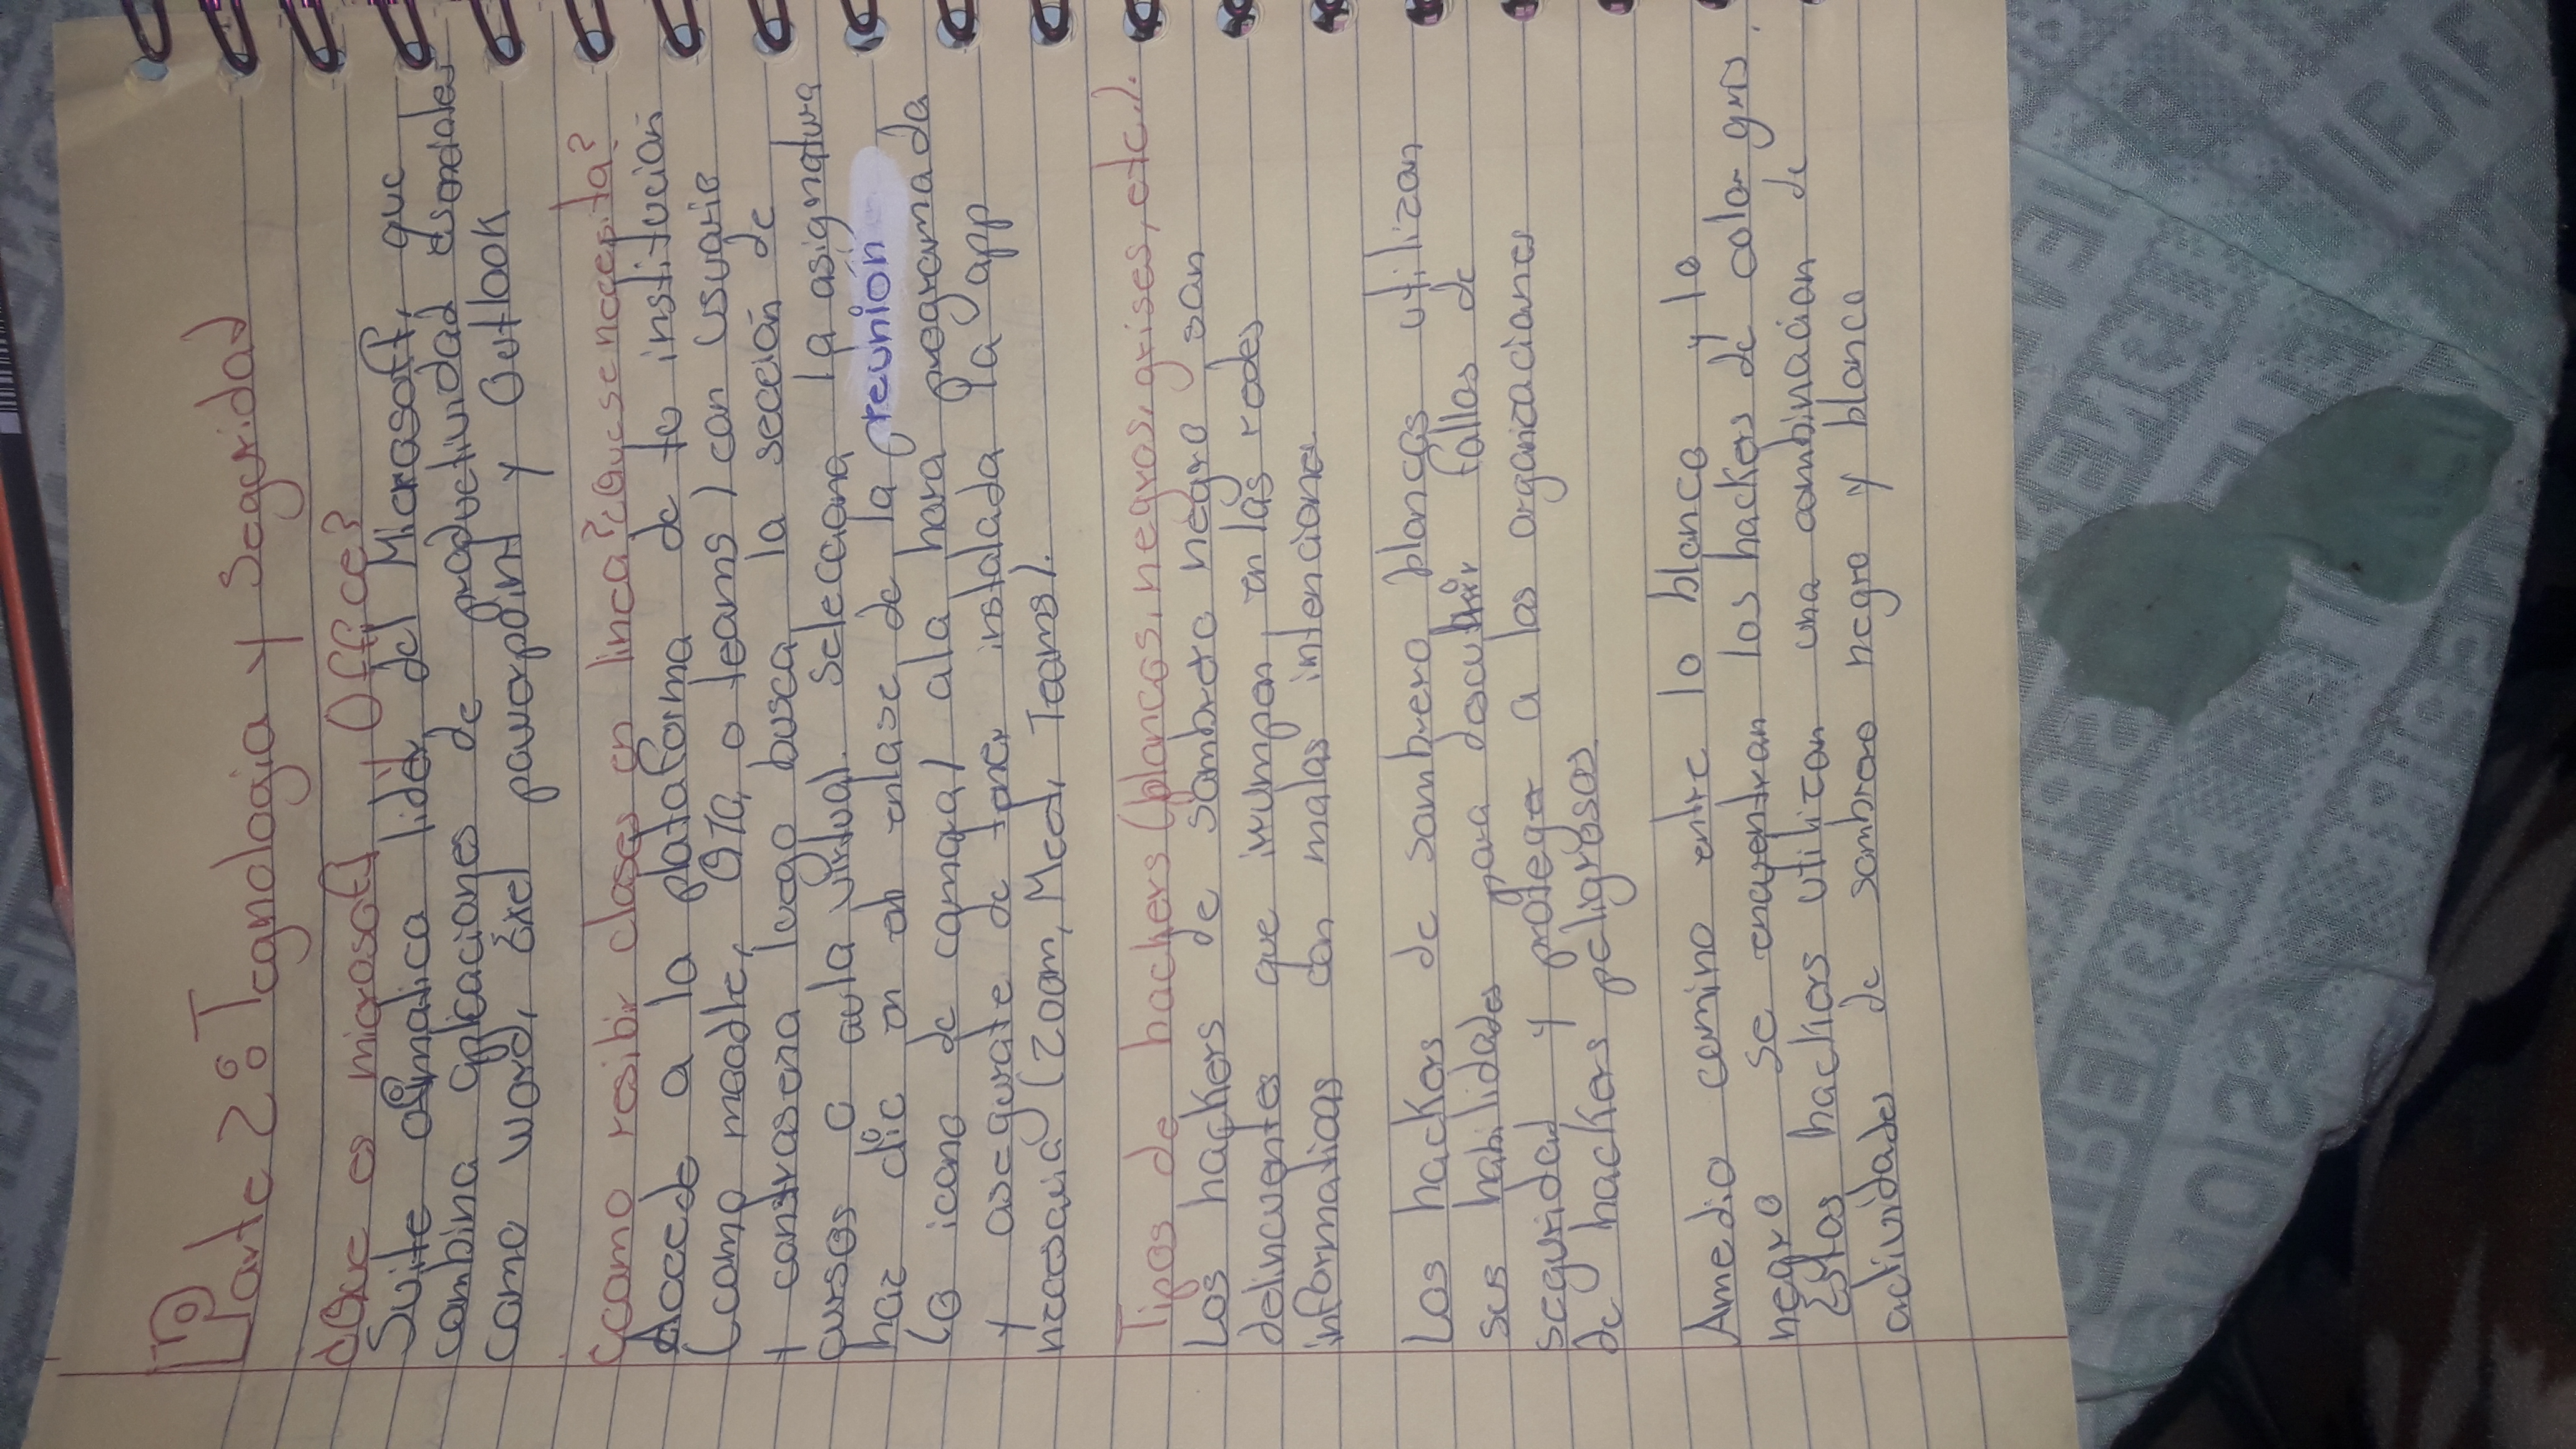 Parte 2: Tegnologia y Seguridad
¿Que es microsoft Office?
Suite ofimatica lider del Microsoft, que
combina aplicaciones de productividad esenciales
como word, éxel pawerpoint y Outlook
¿como resibir clases en linea? ¿Que se nocesita?
Accede a la plataforma de tu institución
(como moodle, 970, o teams) con usuario
y contrasena luego busca la sección de
cursos o aula virtual. selecciona la asignatura
haz clic en el enlase de la reunión
(o icono de camara) a la hora programada
y asegurate de tener instalada la app
necesaria (Zoom, Meed, Teams).
Tipos de hackers (blancos, negros, grises, etc).
Los hackers de sombrero negro son
delincuentes que irrumpen en las redes
informaticas con malas intenciones
Los hackers de sambrero blancos utilizan
sus habilidades para descubrir fallas de
seguridad y proteger a las organizaciones
de hackers peligrosos.
Amedio camino entre lo blanco y lo
negro se encuentran los hackers de color gris.
Estos hackers utilizan una combinacion de
actividades de sombrero negro y blanco